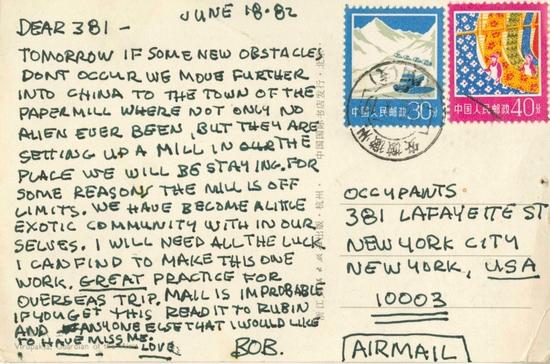 JUNE 18·82
DEAR 381 –
TOMORROW IF SOME NEW OBSTACLES
DONT OCCUR WE MOVE FURTHER
INTO CHINA TO THE TOWN OF THE
PAPERMILL WHERE NOT ONLY NO
ALIEN EVER BEEN, BUT THEY ARE
SETTING UP A MILL IN OUR THE
PLACE WE WILL BE STAYING. FOR
SOME REASON THE MILL IS OFF
LIMITS. WE HAVE BECOME A LITTLE
EXOTIC COMMUNITY WITH IN OUR
SELVES. I WILL NEED ALL THE LUCK
I CAN FIND TO MAKE THIS ONE
WORK, GREAT PRACTICE FOR
OVERSEAS TRIP. MAIL IS IMPROBABLE
IF YOU GET THIS READ IT TO RUBIN
AND ANYONE ELSE THAT I WOULD LIKE
TO HAVE MISS ME.
LOVE BOB.
Virupaksa, Guardian of
中国国际书店发行·北京
中国人民邮政 30分
中国人民邮政 40分
OCCUPANTS
381 LAFAYETTE ST
NEW YORK CITY
NEW YORK, USA
10003
AIRMAIL